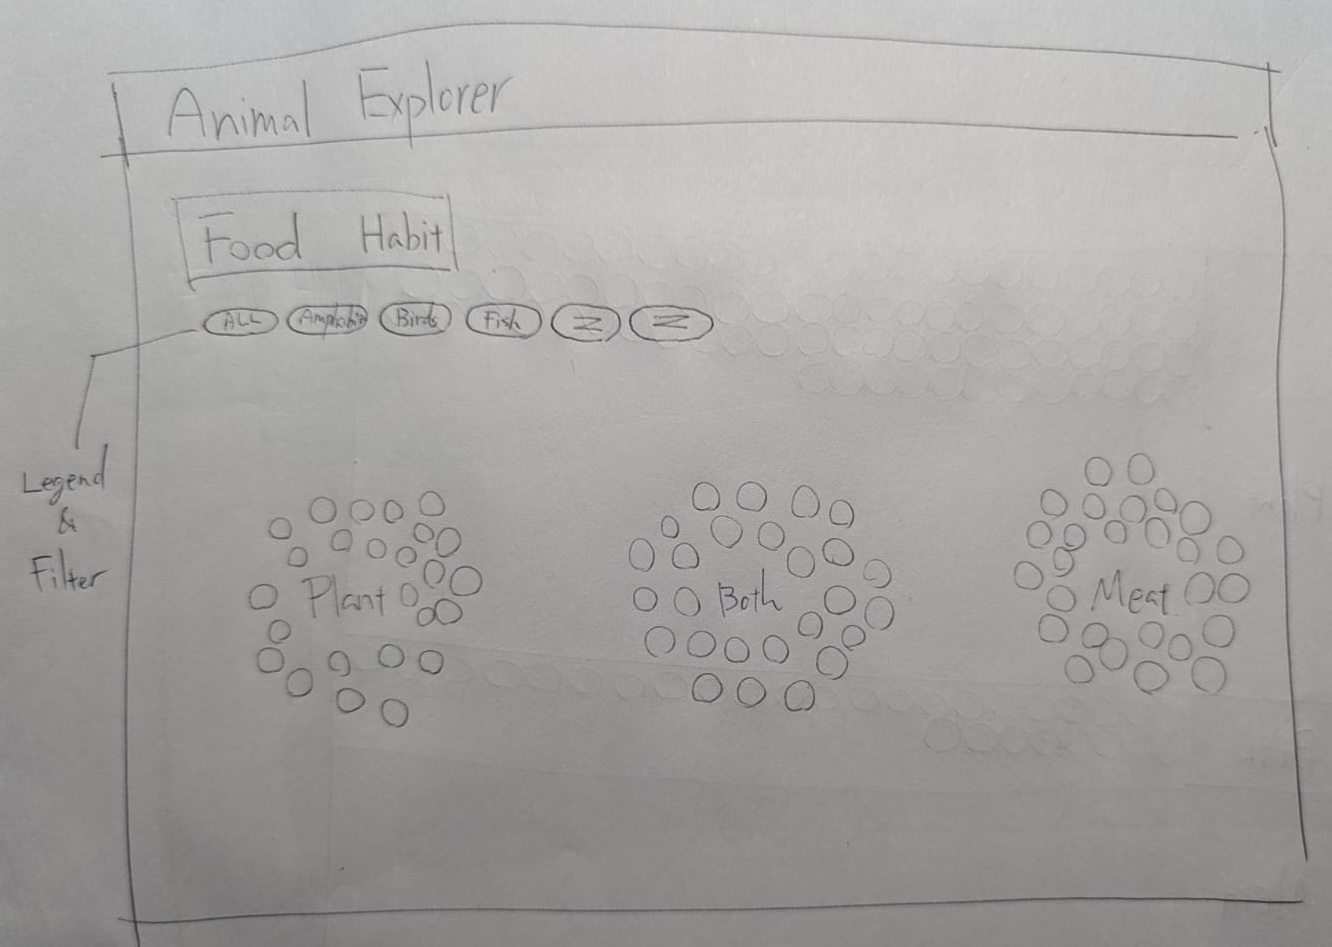 Animal Explorer
Food Habit
ALL Birds Fish
Legend
&
Filter
Plant Both Meat